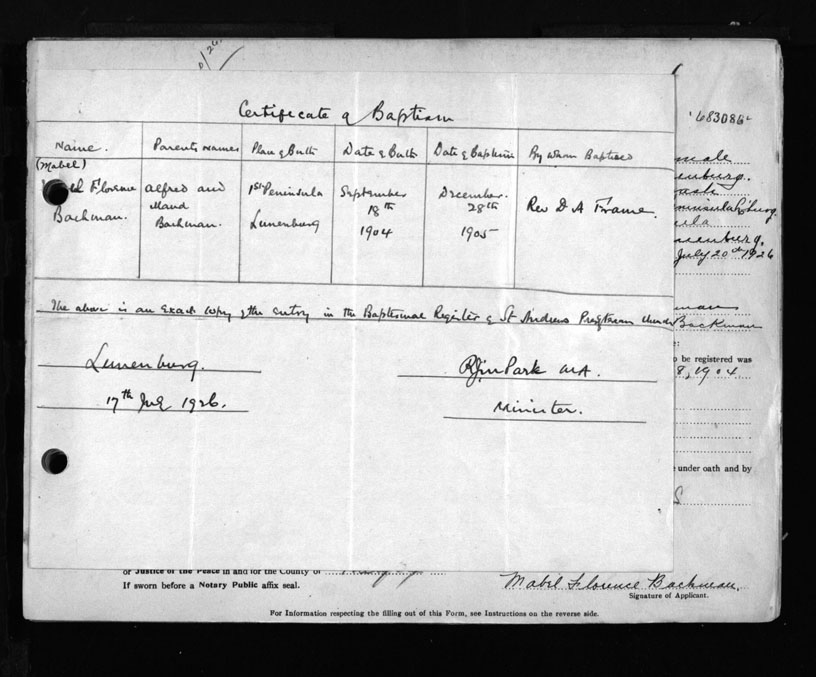 Certificate of Baptism
Name. Parents Names Place of Birth Date of Birth Date of Baptism By Whom Baptised
(Mabel)
Florence Alfred and 1st Peninsula September December Rev D A Frame.
Bachman. Maud Lunenburg 18th 28th
Bachman. 1904 1905
The above is an exact copy of the entry in the Baptismal Register of St Andrews Presbyterian Church
Lunenburg. Park M.A.
17th July 1926. Minister.
683086
male
enburg.
ninsula
enburg.
July 20th 1926
Bachman
o be registered was
8, 1904
under oath and by
S
or Justice of the Peace in and for the County of
If sworn before a Notary Public affix seal.
Mabel Florence Bachman.
Signature of Applicant.
For Information respecting the filling out of this Form, see Instructions on the reverse side.